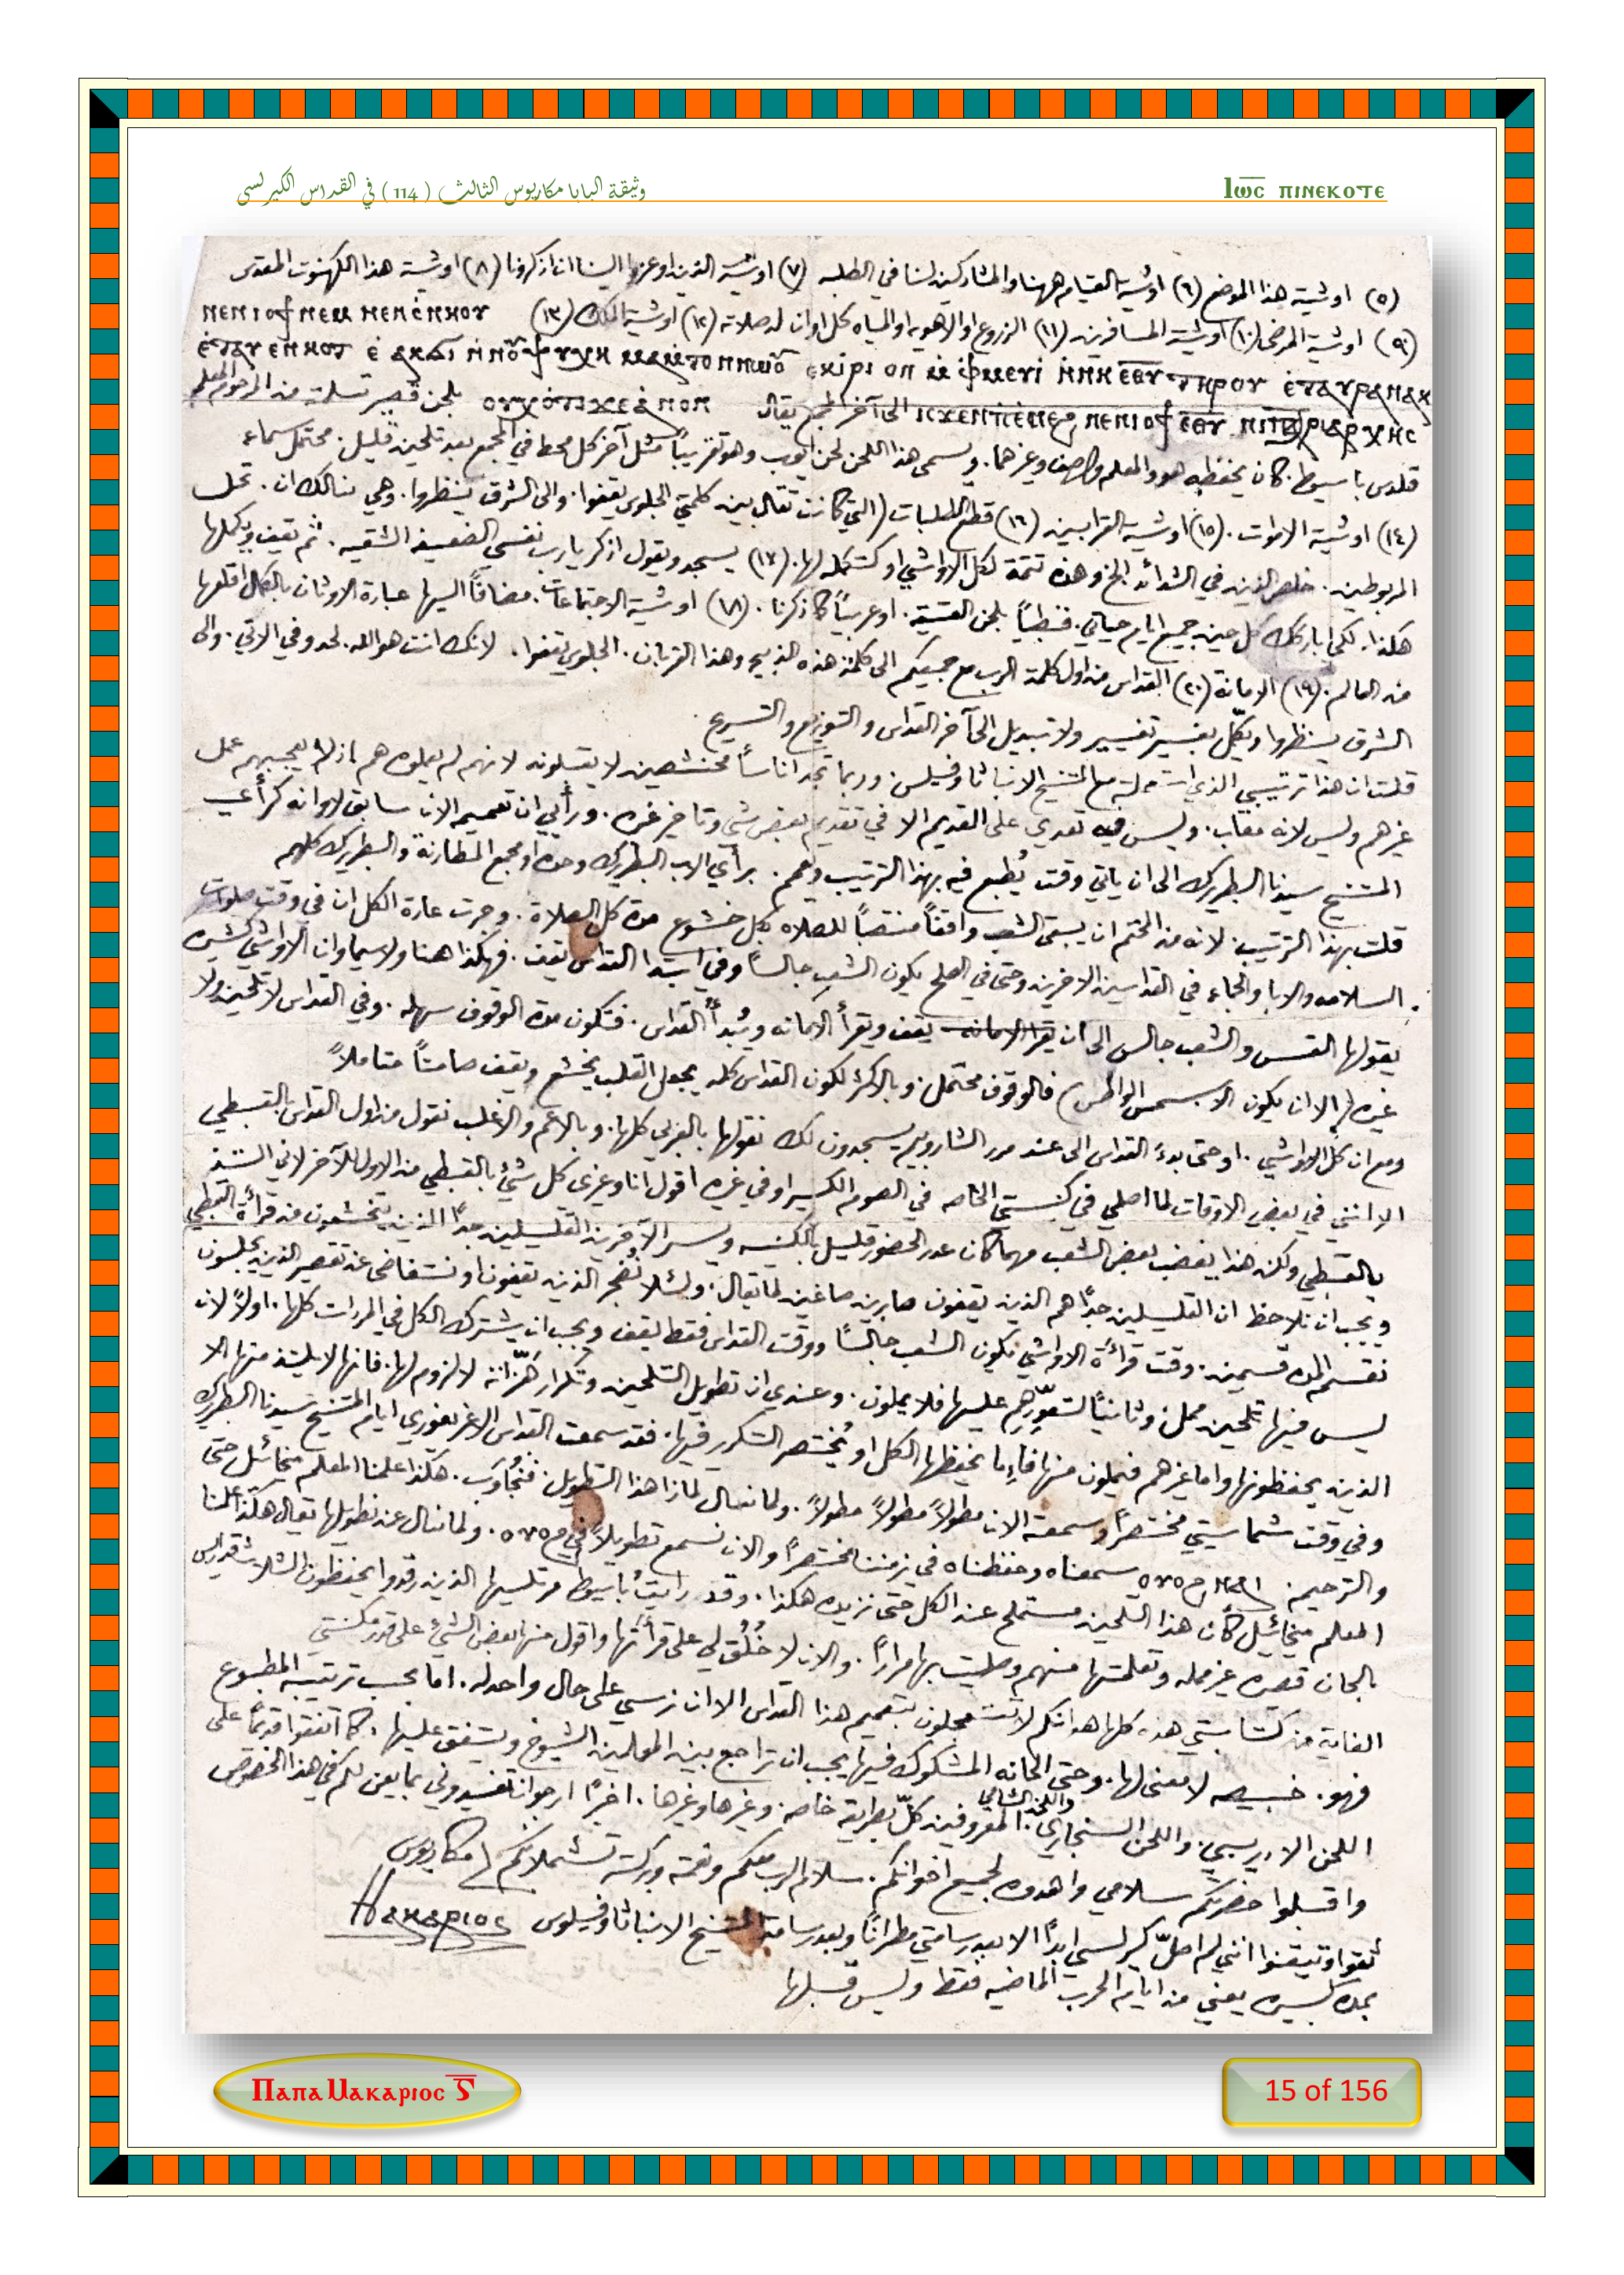 وثيقة البابا مكاريوس الثالث ( 114 ) في القداس الكيرلسى
Ⲓⲱ̅ⲥ̅ ⲡⲓⲛⲉⲕⲟⲧⲉ
(٥) اوشية هذا الموضع (٦) اوشية القيام ههنا والمشاركين لنا في الطلبه (٧) اوشية الذين اوعزوا الينا ان اذكرونا (٨) اوشية هذا الكهنوت المقدس
(٩) اوشية المرضى (١٠) اوشية المسافرين (١١) الزروع او الاهويه او المياه كل اوان له صلاته (١٢) اوشية الملك (١٣) ⲛⲉⲛⲓⲟϯ ⲛⲉⲙ ⲛⲉⲛⲥⲛⲏⲟⲩ
ⲉⲧⲁⲩⲉⲛⲕⲟⲧ
ⲁⲣⲓⲫⲙⲉⲩⲓ ⲛⲛⲏ ⲉⲑⲩ ⲧⲏⲣⲟⲩ ⲉⲧⲁⲩⲣⲁⲛⲁⲕ
ⲓⲥϫⲉⲛ ⲡⲉⲛⲉϩ ⲛⲉⲛⲓⲟϯ ⲉⲑⲩ ⲛⲓⲡⲁⲧⲣⲓⲁⲣⲭⲏⲥ الى آخر المجمع يقال ⲟⲩⲭ ⲟⲧⲓ ϫⲉ ⲁⲛⲟⲛ بلحن قصير تسلمته من المرحوم المعلم
قلدس باسيوط. كان يحفظه هو والمعلم واصف وغيرهما. ويسمى هذا اللحن لحن ايوب وهو تقريباً مثل آخر كل محط في المجمع بعد تلحين قليل. محتمل سماع
(١٤) اوشية الاموات. (١٥) اوشية القرابين (١٦) قطع الطلبات (التي كانت تقال بين كلمتي الجلوس يقفوا. والى الشرق ينظروا. وهي بنا لك ان. تحل
المربوطين. خلص الذين في الشدائد الخ وهذه تتمة لكل الاواشي او كتكمله لها. (١٧) يسجد ويقول اذكر يارب نفسي الضعيفه الشقيه. ثم يقف ويكملها
هكذا. لكي اباركك كل حين جميع ايام حياتي. قبطياً بلحن القسمة. او عربياً كما ذكرنا. (١٨) اوشية الاجتماعات. مضافاً اليها عبارة الاوثان بالكمال اقلعها
من العالم. (١٩) الامانة (٢٠) القداس من اول كلمة الرب مع جميعكم الى كلمة هذه الذبيحه وهذا القربان. الجلوس يقفوا. لانك انت هو الله. لحد وفي الاتي. والى
الشرق ينظروا ويكمّل بغير تغيير ولا تبديل الى آخر القداس والتوزيع والتسريح.
قلت ان هذا ترتيبي الذي استلمته مع المتنيح الانبا ثاوفيلس. وربما تجد اناساً مختصين لا يقبلونه لانهم لم يعملوه هم اذ لم يعجبهم عمل
غيرهم وليس لانه معاب. وليس فيه تعدي على القديم الا في تقديم بعض شي وتاخير غيره. ورأيي ان تعميمه الان سابق لاوانه كرأي
المتنيح سيدنا البطريرك الى ان ياتي وقت يُطبع فيه بهذا الترتيب ويعمم. برأي الاب البطريرك وحده او مجمع المطارنة والبطريرك كلهم
قلت بهذا الترتيب. لانه من المحتم ان يبقى الشعب واقفاً منتصباً للصلاه بكل خشوع مدة كل الصلاة. وجرت عادة الكل ان في وقت صلوات
السلامه والابا والجماعه في القداسين الاخرين وحتى في الصلح يكون الشعب جالساً وفي ابتدا القداس يقف. فهكذا هنا ولاسيما وان الاواشي كثيره
يقولها القس والشعب جالس الى ان يقف ويقرأ الامانه ويُبدأ القداس. فتكون مدة الوقوف سهله. وفي القداس لا تلحين ولا
غيره (الا ان يكون الاسبسمس الواطس) فالوقوف محتمل. وبالاكثر لكون القداس كله يجعل القلب يخشع ويقف صامتاً متاملاً
ومع ان كل الاواشي. او حتى بدء القداس الى عند مرد الشاروبيم يسجدون لك نقولها بالعربي كلها. وبالاعم والاغلب نقول من اول القداس بالقبطي
الا انني في بعض الاوقات لما اصلي في كنيستي الخاصه في الصوم الكبير او في غيره اقول انا وغيري كل شيء بالقبطي من الاول للآخر لاني التذ
بالقبطي ولكن هذا يغضب بعض الشعب مهما كان عدد الحضور قليل بالكنيسه ويسر الآخرين القليلين جداً الذين يخشعون من قرأة القبطي
ويجب ان نلاحظ ان القليلين جداً هم الذين يقفون صابرين صاغين لما يقال. ولئلا نُضجر الذين يقفون او نتغاضى عن تقصير الذين يجلسون
نقسم المده قسمين. وقت قرأة الاواشي يكون الشعب جالساً ووقت القداس فقط يقف ويجب ان يشترك الكل في المردات كلها. اولاً لان
ليس فيها تلحين ممل. وثانياً لتعوّدهم عليها فلا يملون. وعندي ان تطويل التلحين وتكرار هزّاته لا لزوم لها. فانها لا يلتذ منها الا
الذين يحفظونها واما غيرهم فيملون منها فاءما يحفظها الكل او يُختصر التكرر فيها. فقد سمعت القداس الاغريغوري ايام المتنيح سيدنا البطريرك
وفي وقت شماسيتي مختصراً وسمعته الان مطولاً مطولاً مطولاً. ولما نسال لماذا هذا التطويل. فنُجاوَب. هكذا علمنا المعلم ميخائيل حتى
والترحيم سمعناه وحفظناه في زمننا مختصراً والان نسمع تطويلاً في ⲟⲩⲟϩ. ولما نسال عن تطويلها يقال هكذا علمنا
المعلم ميخائيل كأن هذا التلحين مستملح عند الكل حتى نزيده هكذا. وقد رايتُ باسيوط مرتليها الذين رقدوا يحفظون الثلاث قداسات
بالحان قصيره غير ممله وتعلمتها منهم وصليت بها مراراً. والان لا خُلُق لي على قرأتها واقول منها بعض الشئ على قدر مكنتي
الغاية من كتابتي هذه كلها هو انكم لا تستعجلون بتعميم هذا القداس الا ان نرسي على حال واحد له. اما بحسب ترتيبه المطبوع
فهو. لا معنى لها. وحتى الحانه المشكوك فيها يجب ان تراجع بين المعلمين الشيوخ ويتفق عليها. كما اتفقوا قديماً على
اللحن الادريبي. واللحن السنجاري. واللحن الشامي المعروفين كلٌّ بطريقة خاصه. وغيرها وغيرها. اخيراً ارجو ان تفيدوني بما يعن لكم في هذا الخصوص
واقبلوا حضرتكم سلامي واهدوه لجميع اخوانكم. سلام الرب معكم ونعمته وبركته تشملانكم مكاريوس
ثقوا وتيقنوا انني لم اصلّ كيرلسي ابداً الا بعد رسامتي مطراناً وبعد رسامة المتنيح الانبا ثاوفيلوس Ⲙⲁⲕⲁⲣⲓⲟⲥ
بمده كبيره يعني من ايام الحرب الماضيه فقط وليس قبلها
Ⲡⲁⲡⲁ Ⲙⲁⲕⲁⲣⲓⲟⲥ Ⲅ̅
15 of 156